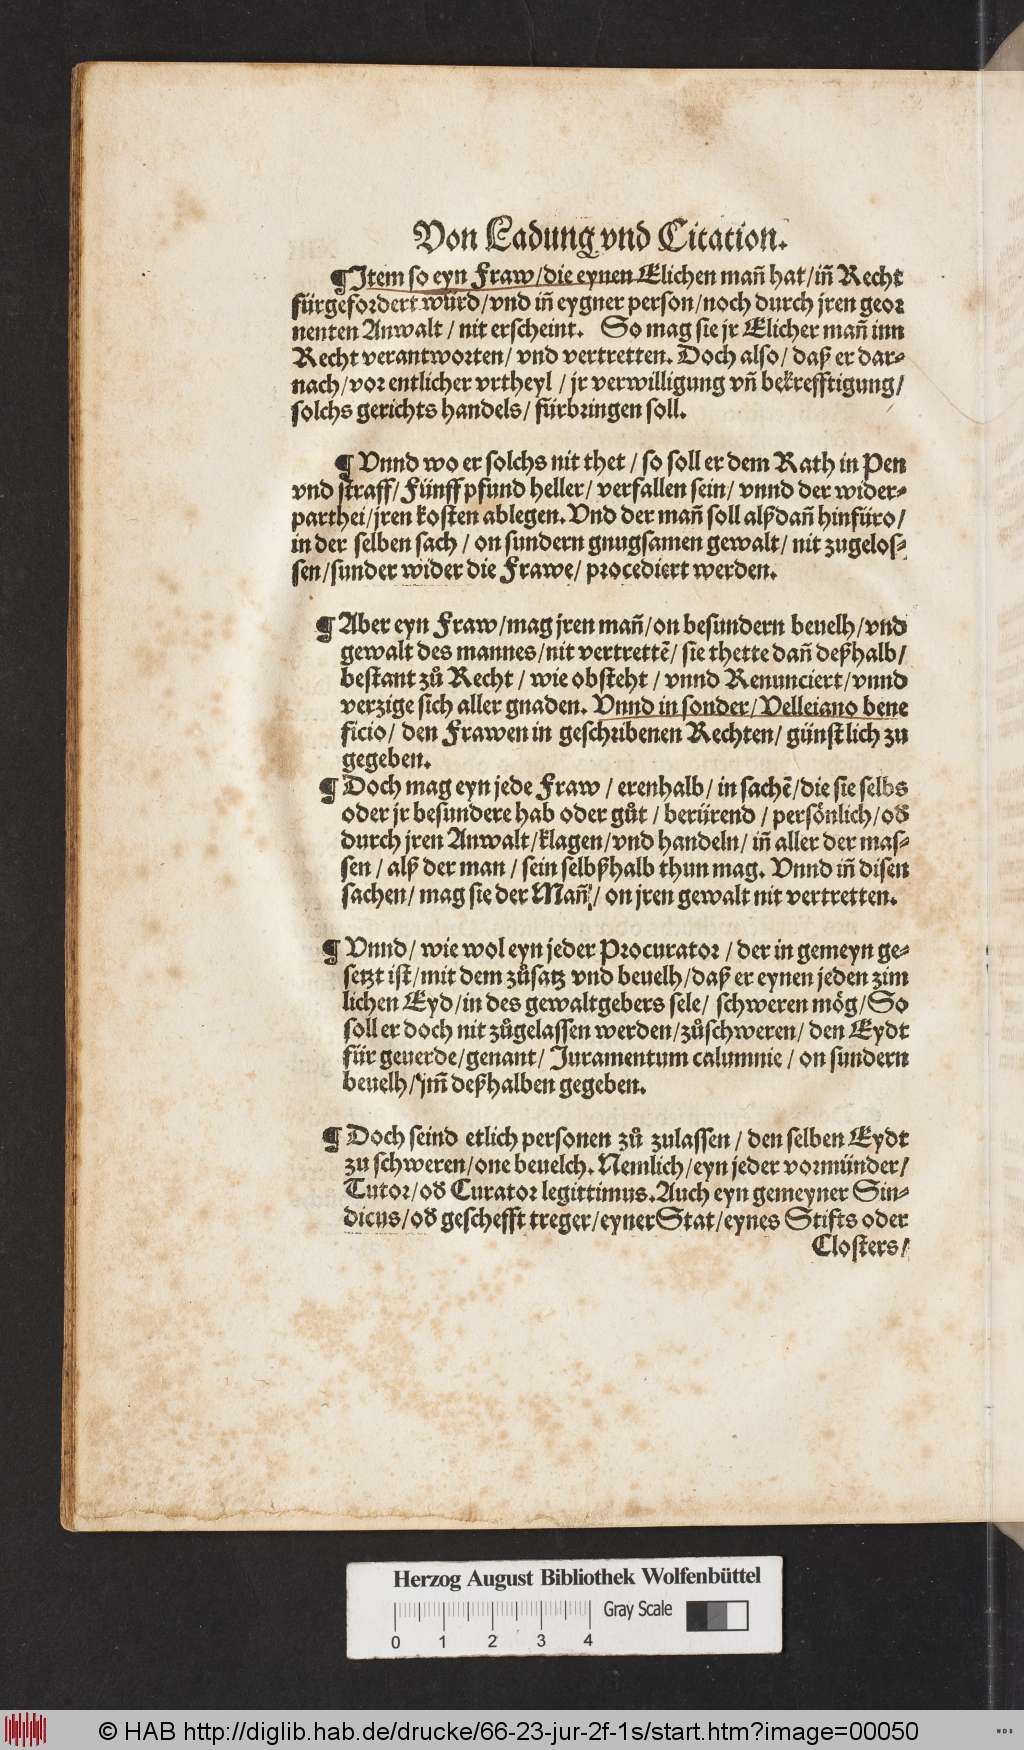 Von Ladung vnd Citation.
¶ Item so eyn Fraw/die eynen Elichen man̄ hat/in̄ Recht
fürgefordert würd/vnd in̄ eygner person/noch durch jren geor
nenten Anwalt / nit erscheint. So mag sie jr Elicher man̄ inn
Recht verantworten/ vnd vertretten. Doch also/ daß er dar=
nach/vor entlicher vrtheyl / jr verwilligung vn̄ bekrefftigung/
solchs gerichts handels/ fürbringen soll.
¶ Vnnd wo er solchs nit thet / so soll er dem Rath in Pen
vnd straff/ Fünff pfund heller/ verfallen sein/ vnnd der wider=
parthei/jren kosten ablegen. Vnd der man̄ soll alßdan̄ hinfüro/
in der selben sach / on sundern gnugsamen gewalt/ nit zugelos=
sen/sunder wider die Frawe/ procediert werden.
¶ Aber eyn Fraw/mag jren man̄/on besundern beuelh/vnd
gewalt des mannes/nit vertrettē/ sie thette dan̄ deßhalb/
bestant zů Recht / wie obsteht / vnnd Renunciert/vnnd
verzige sich aller gnaden. Vnnd in sonder/ Velleiano bene
ficio/ den Frawen in geschribenen Rechten/ günstlich zu
gegeben.
¶ Doch mag eyn jede Fraw / erenhalb/ in sachē/die sie selbs
oder jr besundere hab oder gůt / berürend / persönlich/od
durch jren Anwalt/klagen/vnd handeln/ in̄ aller der mas=
sen / alß der man / sein selbßhalb thun mag. Vnnd in̄ disen
sachen/ mag sie der Man̄/ on jren gewalt nit vertretten.
¶ Vnnd/ wie wol eyn jeder Procurator / der in gemeyn ge=
setzt ist/mit dem zůsatz vnd beuelh/daß er eynen jeden zim
lichen Eyd/in des gewaltgebers sele/ schweren mög/So
soll er doch nit zůgelassen werden/zůschweren/ den Eydt
für geuerde/genant/ Juramentum calumnie / on sundern
beuelh/jm̄ deßhalben gegeben.
¶ Doch seind etlich personen zů zulassen / den selben Eydt
zu schweren/one beuelch. Nemlich/eyn jeder vormünder/
Tutor/od Curator legittimus. Auch eyn gemeyner Sin=
dicus/od geschefft treger/eyner Stat/eynes Stifts oder
Closters/
Herzog August Bibliothek Wolfenbüttel
Gray Scale
0 1 2 3 4
© HAB http://diglib.hab.de/drucke/66-23-jur-2f-1s/start.htm?image=00050